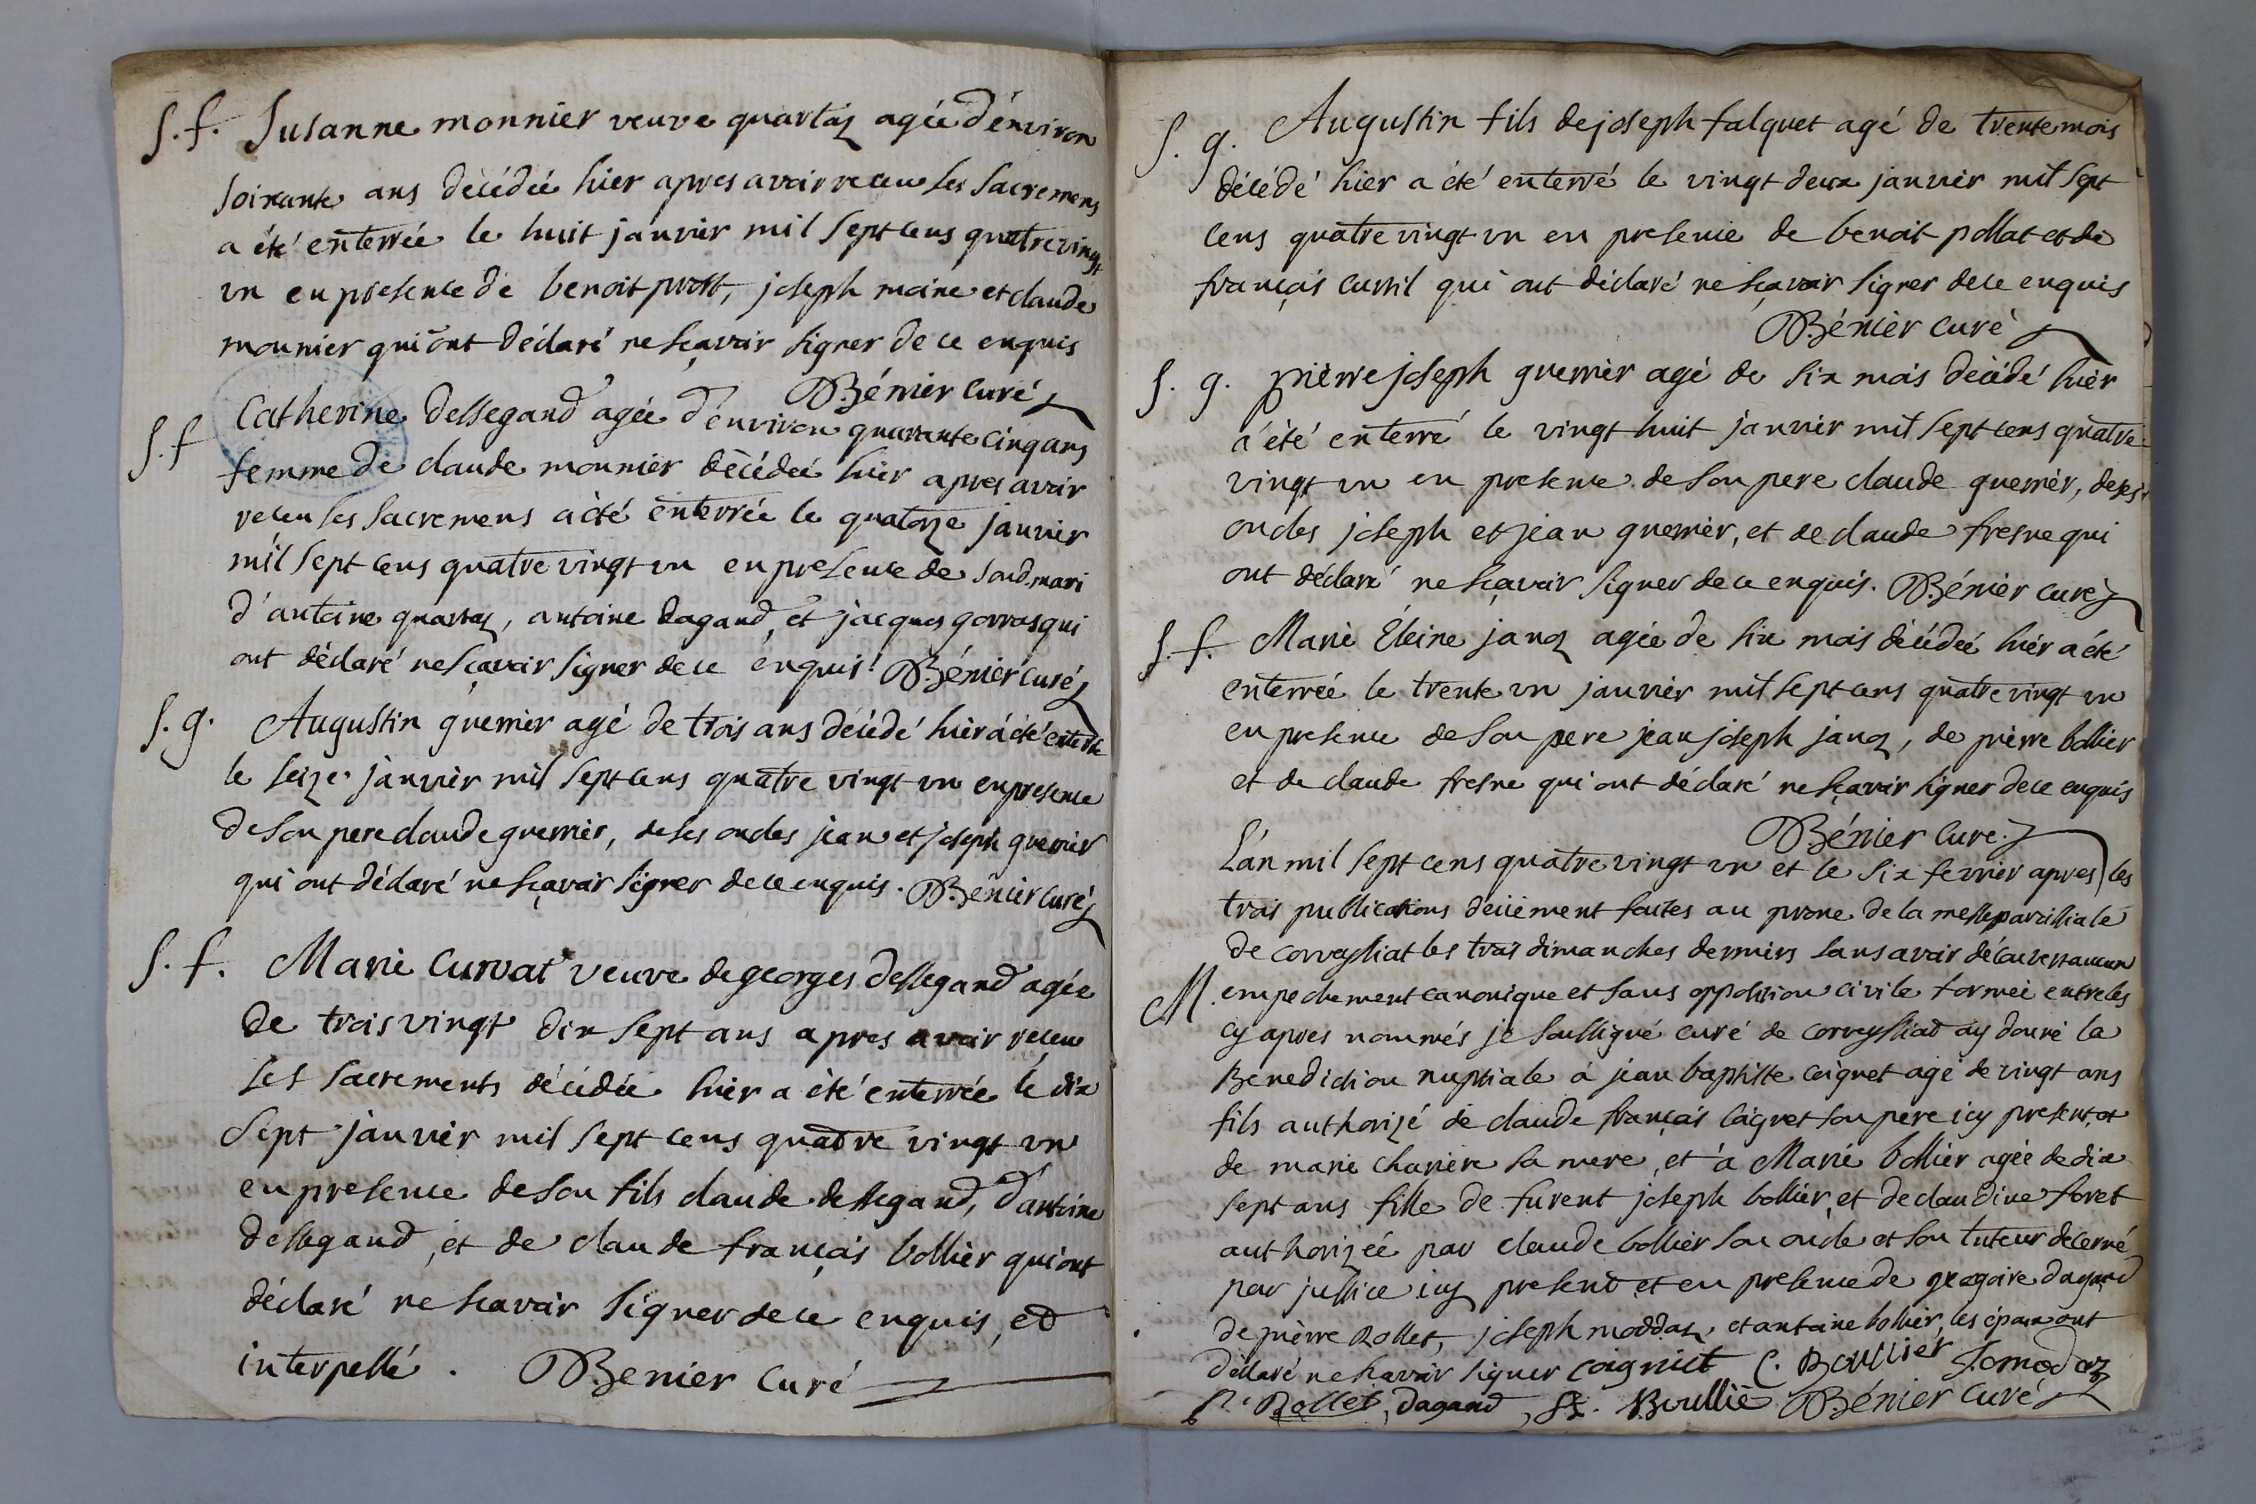 S. f. Susanne monnier veuve quartaz agée d'environ
soixante ans décédée hier apres avoir receu les sacremens
a été enterrée le huit janvier mil sept cens quatre vingt
un en presence de benoit prost, joseph moine et claude
monnier qui ont déclaré ne sçavoir signer de ce enquis
Bénier curé
S. f Catherine dessegand agée d'environ quarante cinq ans
femme de claude monnier décédée hier apres avoir
receu les sacremens a été enterrée le quatorze janvier
mil sept cens quatre vingt un en presence de son d. mari
d'antoine quartaz, antoine dagand, et jacques gorras qui
ont déclaré ne sçavoir signer de ce enquis. Bénier curé
S. g. Augustin guerrier agé de trois ans décédé hier a été enterré
le seize janvier mil sept cens quatre vingt un en presence
de son pere claude guerrier, de ses oncles jean et joseph guerrier
qui ont déclaré ne sçavoir signer de ce enquis. Bénier curé
S. f. Marie Curvat veuve de georges dessegand agée
de trois vingt dix sept ans apres avoir receu
les sacrements décédée hier a été enterrée le dix
sept janvier mil sept cens quatre vingt un
en presence de son fils claude dessegand, d'antoine
dessegand, et de claude françois bollier qui ont
déclaré ne scavoir signer de ce enquis, et
interpellé. Benier curé
S. g. Augustin fils de joseph falquet agé de trente mois
décédé hier a été enterré le vingt deux janvier mil sept
cens quatre vingt un en presence de benoit pollat et de
françois curvil qui ont déclaré ne sçavoir signer de ce enquis
Bénier curé
S. g. pierre joseph guerrier agé de six mois décédé hier
a été enterré le vingt huit janvier mil sept cens quatre
vingt un en presence de son pere claude guerrier, de ses
oncles joseph et jean guerrier, et de claude fresne qui
ont déclaré ne sçavoir signer de ce enquis. Bénier curé
S. f. Marie Eleine janoz agée de six mois décédée hier a été
enterrée le trente un janvier mil sept cens quatre vingt un
en presence de son pere jean joseph janoz, de pierre bollier
et de claude fresne qui ont déclaré ne sçavoir signer de ce enquis
Bénier curé.
L'an mil sept cens quatre vingt un et le six fevrier apres les
trois publications deüement faites au prone de la messe paroissiale
de corveyssiat les trois dimanches derniers sans avoir découvert aucun
M. empechement canonique et sans opposition civile formée entre les
cy apres nommés je soussigné curé de corveyssiat ay donné la
Benediction nuptiale à jean baptiste coignet agé de vingt ans
fils authorizé de claude françois coignet son pere icy present, et
de marie chariere sa mere, et à Marie bollier agée de dix
sept ans fille de furent joseph bollier, et de claudine foret
authorizée par claude bollier son oncle et son tuteur decerné
par justice icy present et en presence de gregoire dagand
de pierre Rollet, joseph moddaz, et antoine bollier, les époux ont
déclaré ne scavoir signer coigniet C. Boullier Jomodaz
Rollet, dagand, Boullié Bénier curé